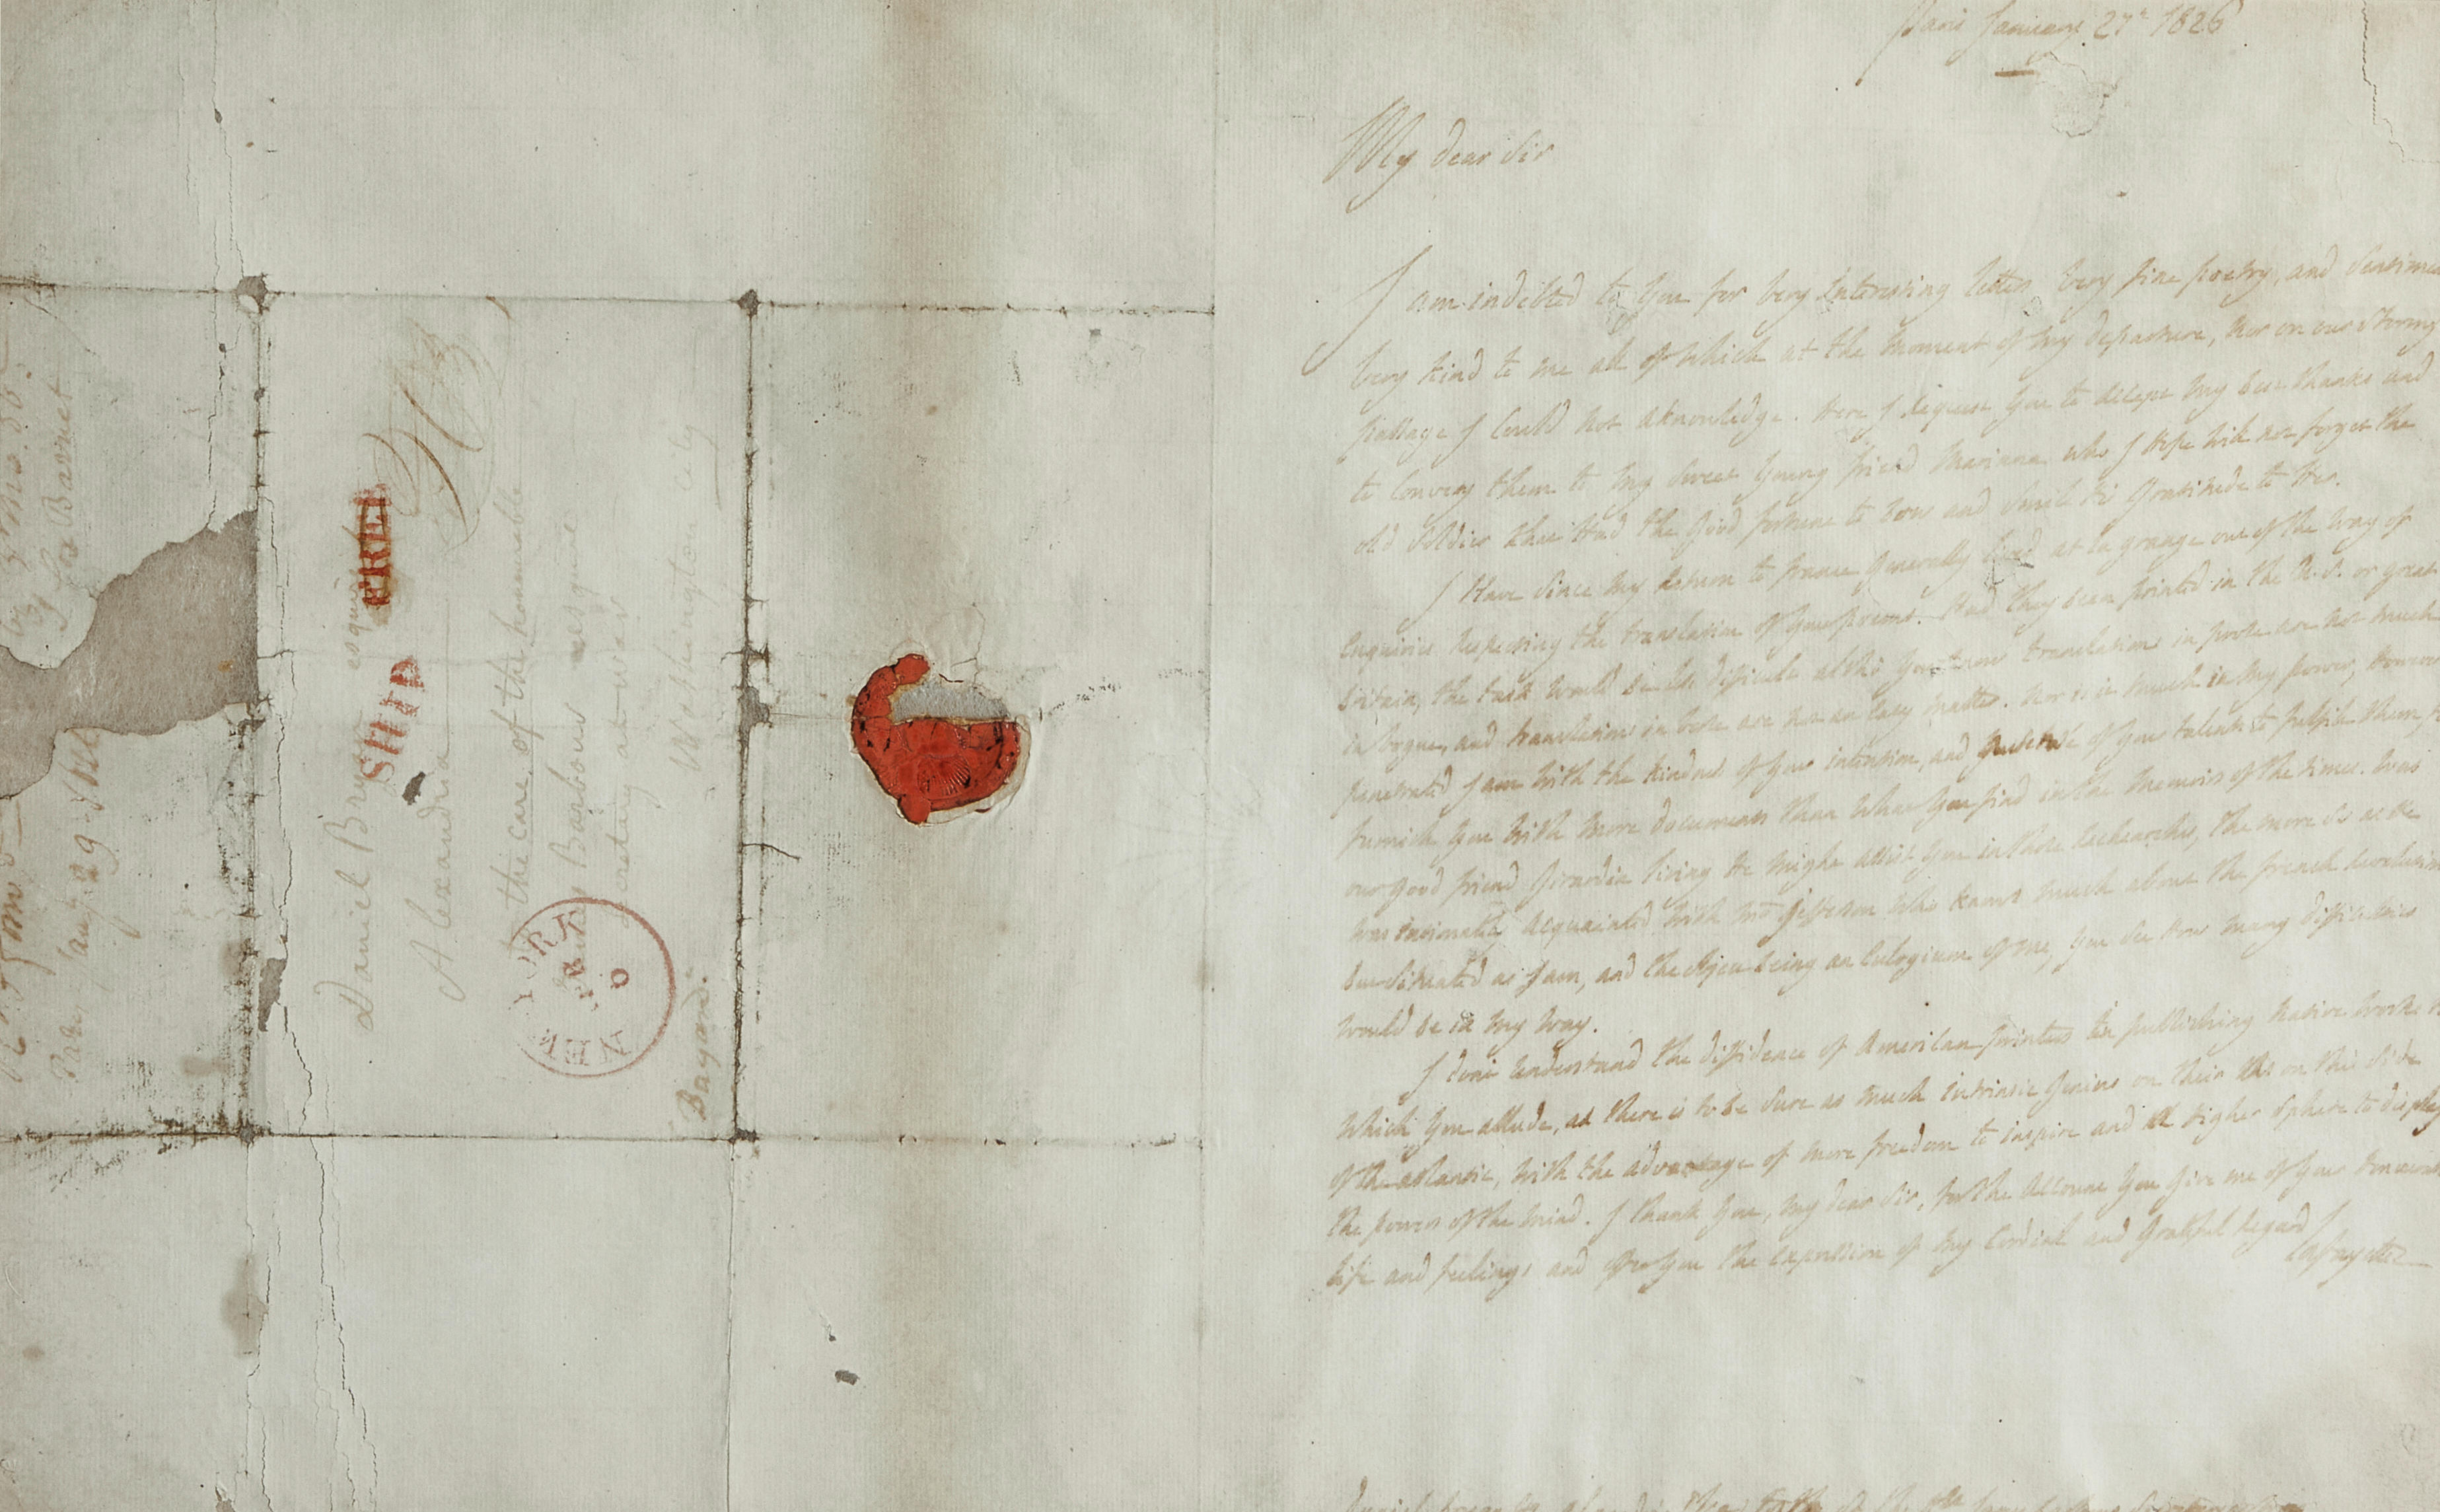 Daniel Bryan esquire
Alexandria
the care of the honourable
James Barbour esquire
Secretary at war
Washington city
Bayard.
FREE
SHIP
NEW YORK
MAR
Barnet
Paris January 27th 1826
My dear Sir
I am indebted to You for Very Interesting letters Very fine poetry, and Sentimen
Very Kind to me all of Which at the Moment of My departure, Nor on our Stormy
passage I Could Not Aknowledge. Here I Request You to Accept My best thanks and
to Convey them to My Sweet Young friend Mariana who I Hope Will not forget the
old Soldier that Had the Good fortune to and His Gratitude to Her.
I Have Since My Return to france Generally lived at la grange out of the Way of
Enquiries Respecting the translation of Your poems. Had they been printed in the U.S. or great
britain, the task Would be less difficult altho' You know translations in prose are not much
in Vogue, and translations in Verse are not an Easy Matter. Nor is it Much in My power, However
penetrated I am With the Kindness of Your intention, and of Your talents to fulfill them, to
furnish You With More documents than What You find in the Memoirs of the times. Was
our Good friend Girardin living He Might Assist You in those Researches, the more So as He
Was Intimately Acquainted With Mr Jefferson Who knows much about the french Revolution
but Situated as I am, and the object being an Eulogium of me, You See How Many difficulties
Would be in My Way.
I don't Understand the diffidence of American printers in publishing Native Works to
Which You allude, as there is to be Sure as Much intrinsic Genius on their as on this Side
of the atlantic, With the advantage of more freedom to inspire and a Higher Sphere to display
the powers of the Mind. I thank You, My dear Sir, for the Account You Give me of Your domestic
life and feelings and offer You the Expression of My Cordial and Grateful Regard
Lafayette